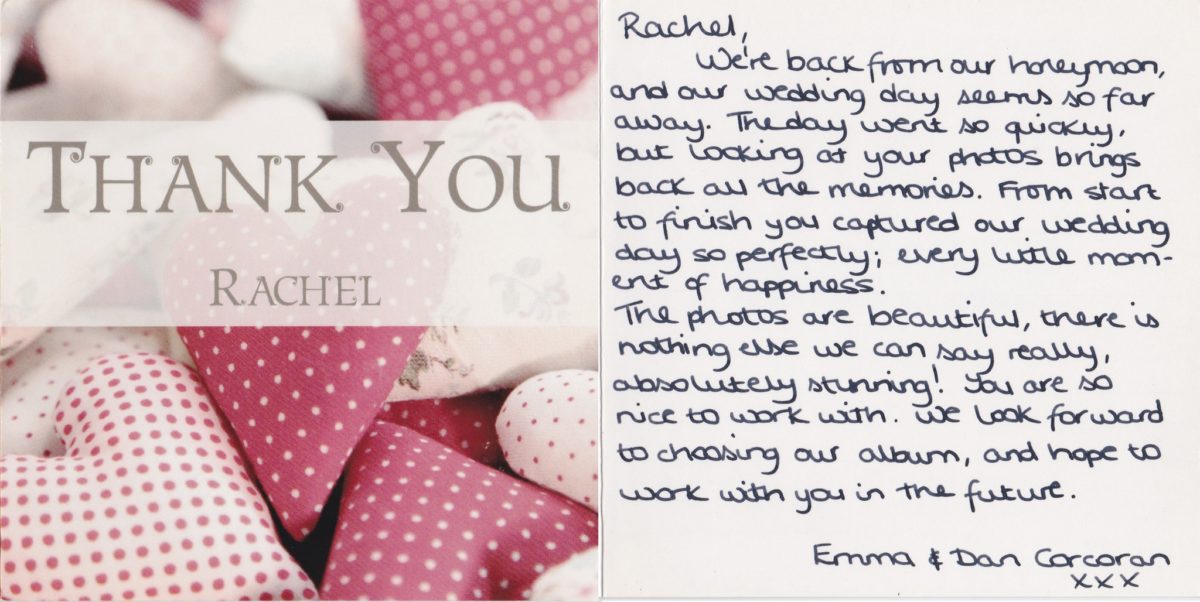 THANK YOU
RACHEL
Rachel,
We're back from our honeymoon,
and our wedding day seems so far
away. The day went so quickly,
but looking at your photos brings
back all the memories. From start
to finish you captured our wedding
day so perfectly; every little mom-
ent of happiness.
The photos are beautiful, there is
nothing else we can say really,
absolutely stunning! You are so
nice to work with. We look forward
to choosing our album, and hope to
work with you in the future.
Emma & Dan Corcoran
xxx